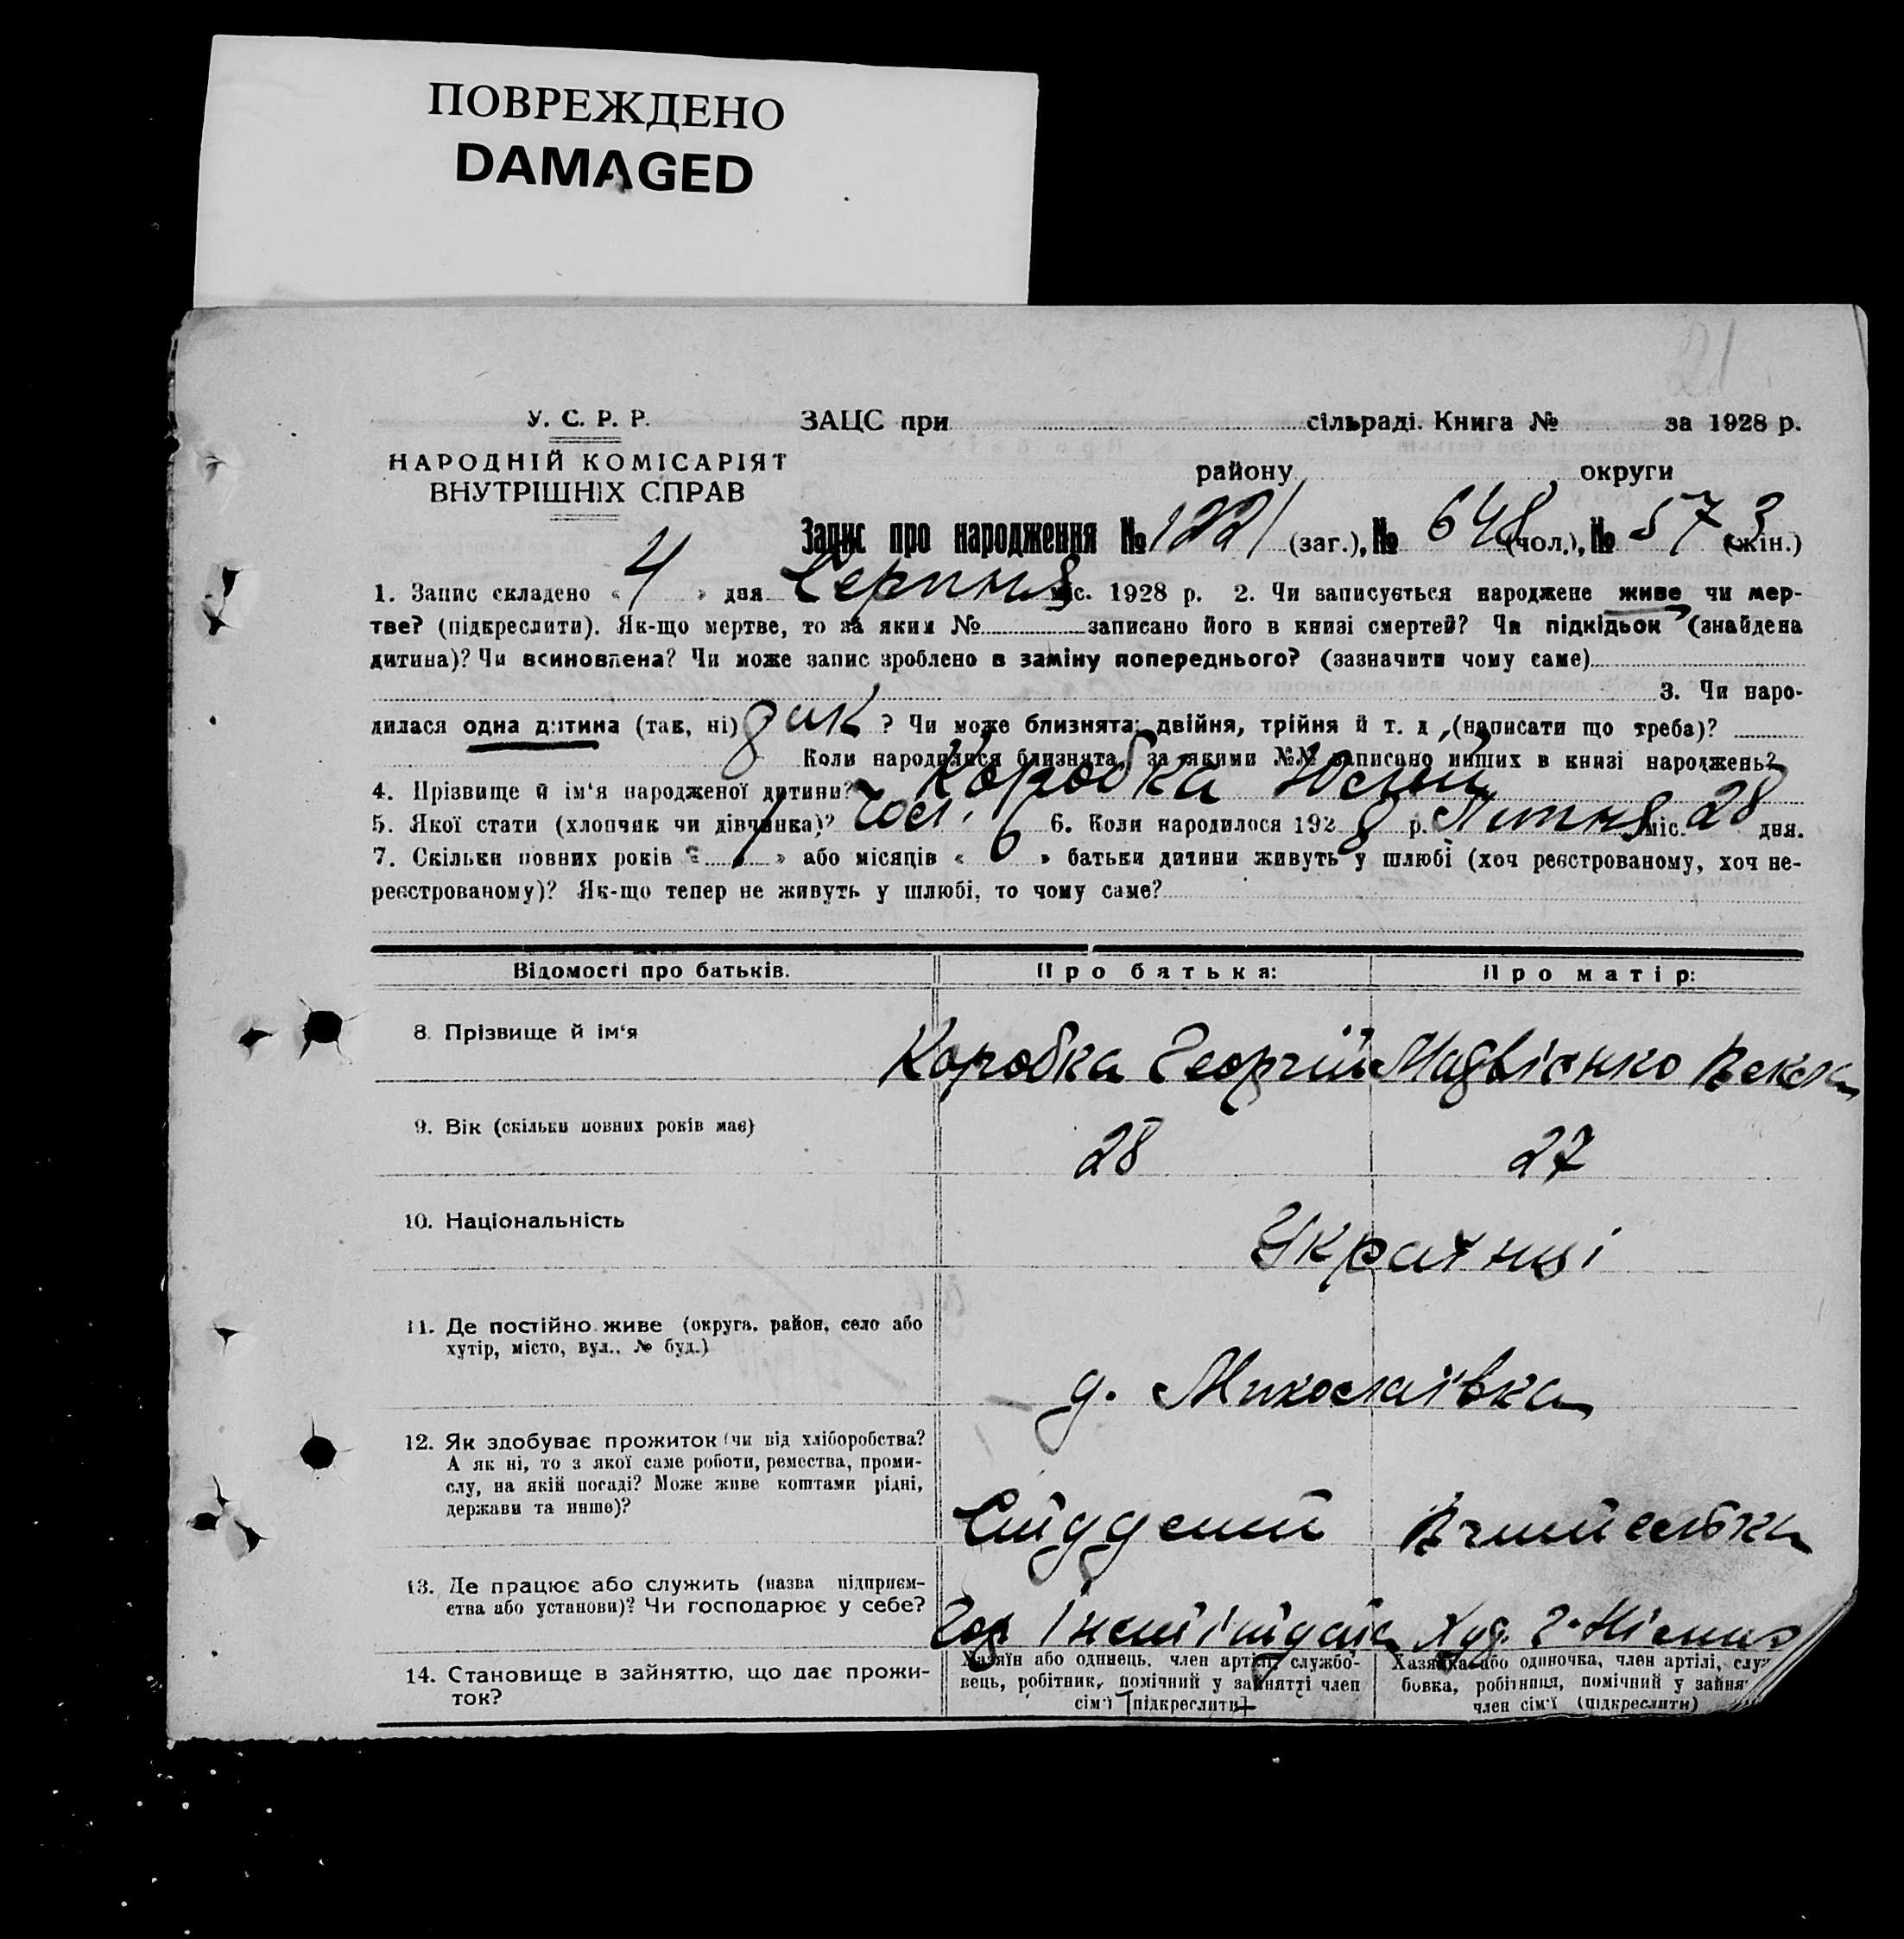 ПОВРЕЖДЕНО
DAMAGED
21
У. С. Р. Р.
НАРОДНІЙ КОМІСАРІЯТ
ВНУТРІШНІХ СПРАВ
ЗАЦС при сільраді. Книга № за 1928 р.
району округи
Запис про народження № 1221 (заг.), № 648 (чол.), № 573 (жін.)
1. Запис складено « 4 » дня Серпня міс. 1928 р. 2. Чи записується народжене живе чи мер-
тве? (підкреслити). Як-що мертве, то за яким № записано його в книзі смертей? Чи підкідьок (знайдена
дитина)? Чи всиновлена? Чи може запис зроблено в заміну попереднього? (зазначити чому саме)
3. Чи наро-
дилася одна дитина (так, ні) так ? Чи може близнята: двійня, трійня й т. д. (написати що треба)?
Коли народилися близнята, за якими №№ записано инших в книзі народжень?
4. Прізвище й ім'я народженої дитини? Коробка Юлій
5. Якої стати (хлопчик чи дівчинка)? чол. 6. Коли народилося 1928 р. Липня міс. 28 дня.
7. Скільки повних років « » або місяців « 6 » батьки дитини живуть у шлюбі (хоч реєстрованому, хоч не-
реєстрованому)? Як-що тепер не живуть у шлюбі, то чому саме?
Відомості про батьків. Про батька: Про матір:
8. Прізвище й ім'я Коробка Георгій Матвієнко
9. Вік (скільки повних років має) 28 27
10. Національність Українці
11. Де постійно живе (округа, район, село або
хутір, місто, вул., № буд.)
д. Миколаївка
12. Як здобуває прожиток (чи від хліборобства?
А як ні, то з якої саме роботи, ремества, проми-
слу, на якій посаді? Може живе коштами рідні,
держави та инше)?
Студент Вчителька
13. Де працює або служить (назва підприєм-
ства або установи)? Чи господарює у себе?
Інститута Худ.
14. Становище в зайняттю, що дає прожи-
ток?
Хазяїн або одинець, член артілі, службо-
вець, робітник, помічний у зайнятті член
сім'ї [підкреслити]
Хазяйка або одиночка, член артілі, служ
бовка, робітниця, помічний у зайня
член сім'ї (підкреслити)